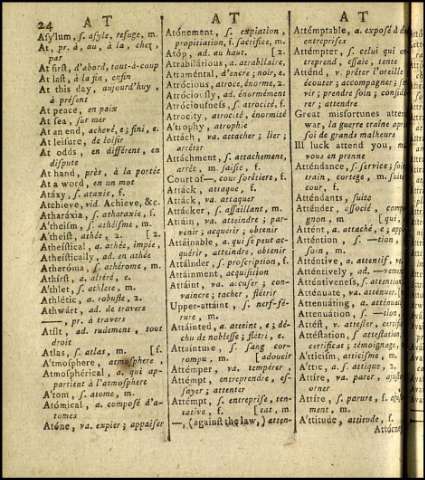 24 A T
A T
A T
Asylum, s. asyle, refuge, m.
At, pr. à, au, à la, chez,
par
At first, d'abord, tout-à-coup
At last, à la fin, enfin
At this day, aujourd'huy,
à présent
At peace, en paix
At sea, sur mer
At an end, achevé, e; fini, e.
At leisure, de loisir
At odds, en différent, en
dispute
At hand, près, à la portée
At a word, en un mot
Ataxy, s. ataxie, f.
Atchieve, vid. Achieve, &c.
Atharáxia, s. atharaxie, f.
A'theism, s. athéïsme, m.
A'theist, athée, 2. [2.
Atheïstical, a. athée, impie,
Atheïstically, ad. en athée
Atheróma, s. athérome, m.
Athirst, a. altéré, e.
A'thlet, s. athlete, m.
Athlétic, a. robuste, 2.
Athwárt, ad. de travers
——, pr. à travers
Atílt, ad. rudement, tout
droit
Atlas, s. atlas, m. [f.
A'tmosphere, atmosphere,
Atmosphérical, a. qui ap-
partient à l'atmosphere
A'tom, s. atome, m.
Atómical, a. composé d'a-
tomes
Atóne, va. expier; appaiser
Atónement, s. expiation,
propitiation, f. sacrifice, m.
Atóp, ad. au haut. [2.
Atrabilárious, a. atrabilaire,
Atraméntal, d'encre; noir, e.
Atrócious, atroce, énorme, 2.
Atróciously, ad. énormément
Atróciousness, s. atrocité, f.
Atrocity, atrocité, énormité
A'trophy, atrophie
Attách, va. attacher; lier;
arrêter
Attáchment, s. attachement,
arrêt, m. saisie, f.
Court of—, cour foretiere, f.
Attáck, attaque, f.
Attáck, va. attaquer
Attácker, s. assaillant, m.
Attáin, va. atteindre; par-
venir; acquérir; obtenir
Attáinable, a. qui se peut ac-
quérir, atteindre, obtenir
Attáinder, s. proscription, f.
Attáinment, acquisition
Attáint, va. accuser; con-
vaincre; tacher, flétrir
Upper-attaint, s. nerf-fé-
rure, m.
Attáinted, a. atteint, e; dé-
chu de noblesse; flétri, e.
Attainture, s. sang cor-
rompu, m. [adoucir
Attémper, va. tempérer,
Attémpt, entreprendre, es-
sayer; attenter
Attémpt, s. entreprise, ten-
tative, f. [tat, m.
—, (against the law,) atten-
Attémptable, a. exposé à de
entreprises
Attémpter, s. celui qui en
treprend, essaie, tente
Atténd, v. prêter l'oreille
écouter; accompagner;
vir; prendre soin; considé
rer; attendre
Great misfortunes atten
war, la guerre traîne apr
soi de grands malheurs
Ill luck attend you, m
vous en prenne
Atténdance, s. service; soin
train, cortege, m. suite
cour, f.
Atténdants, suite
Atténder, associé, com
gnon, m. [qui,
Attént, a. attaché, e; app
Atténtion, s. —tion,
soin, m.
Atténtive, a. attentif, v
Atténtively, ad. —vemen
Atténtiveness, s. attention
Atténuate, va. atténuer, [
Attenuating, a. atténuant
Attenuátion, s. —tion,
Attést, va. attester, certif
Attestátion, s. attestation,
certificat; témoignage,
A'tticism, atticisme, m.
A'ttic, a. s. attique, 2.
Attíre, va. parer, ajust
orner
Attíre, s. parure, f. aju
ment, m.
A'ttitude, attitude, f.
Attórne